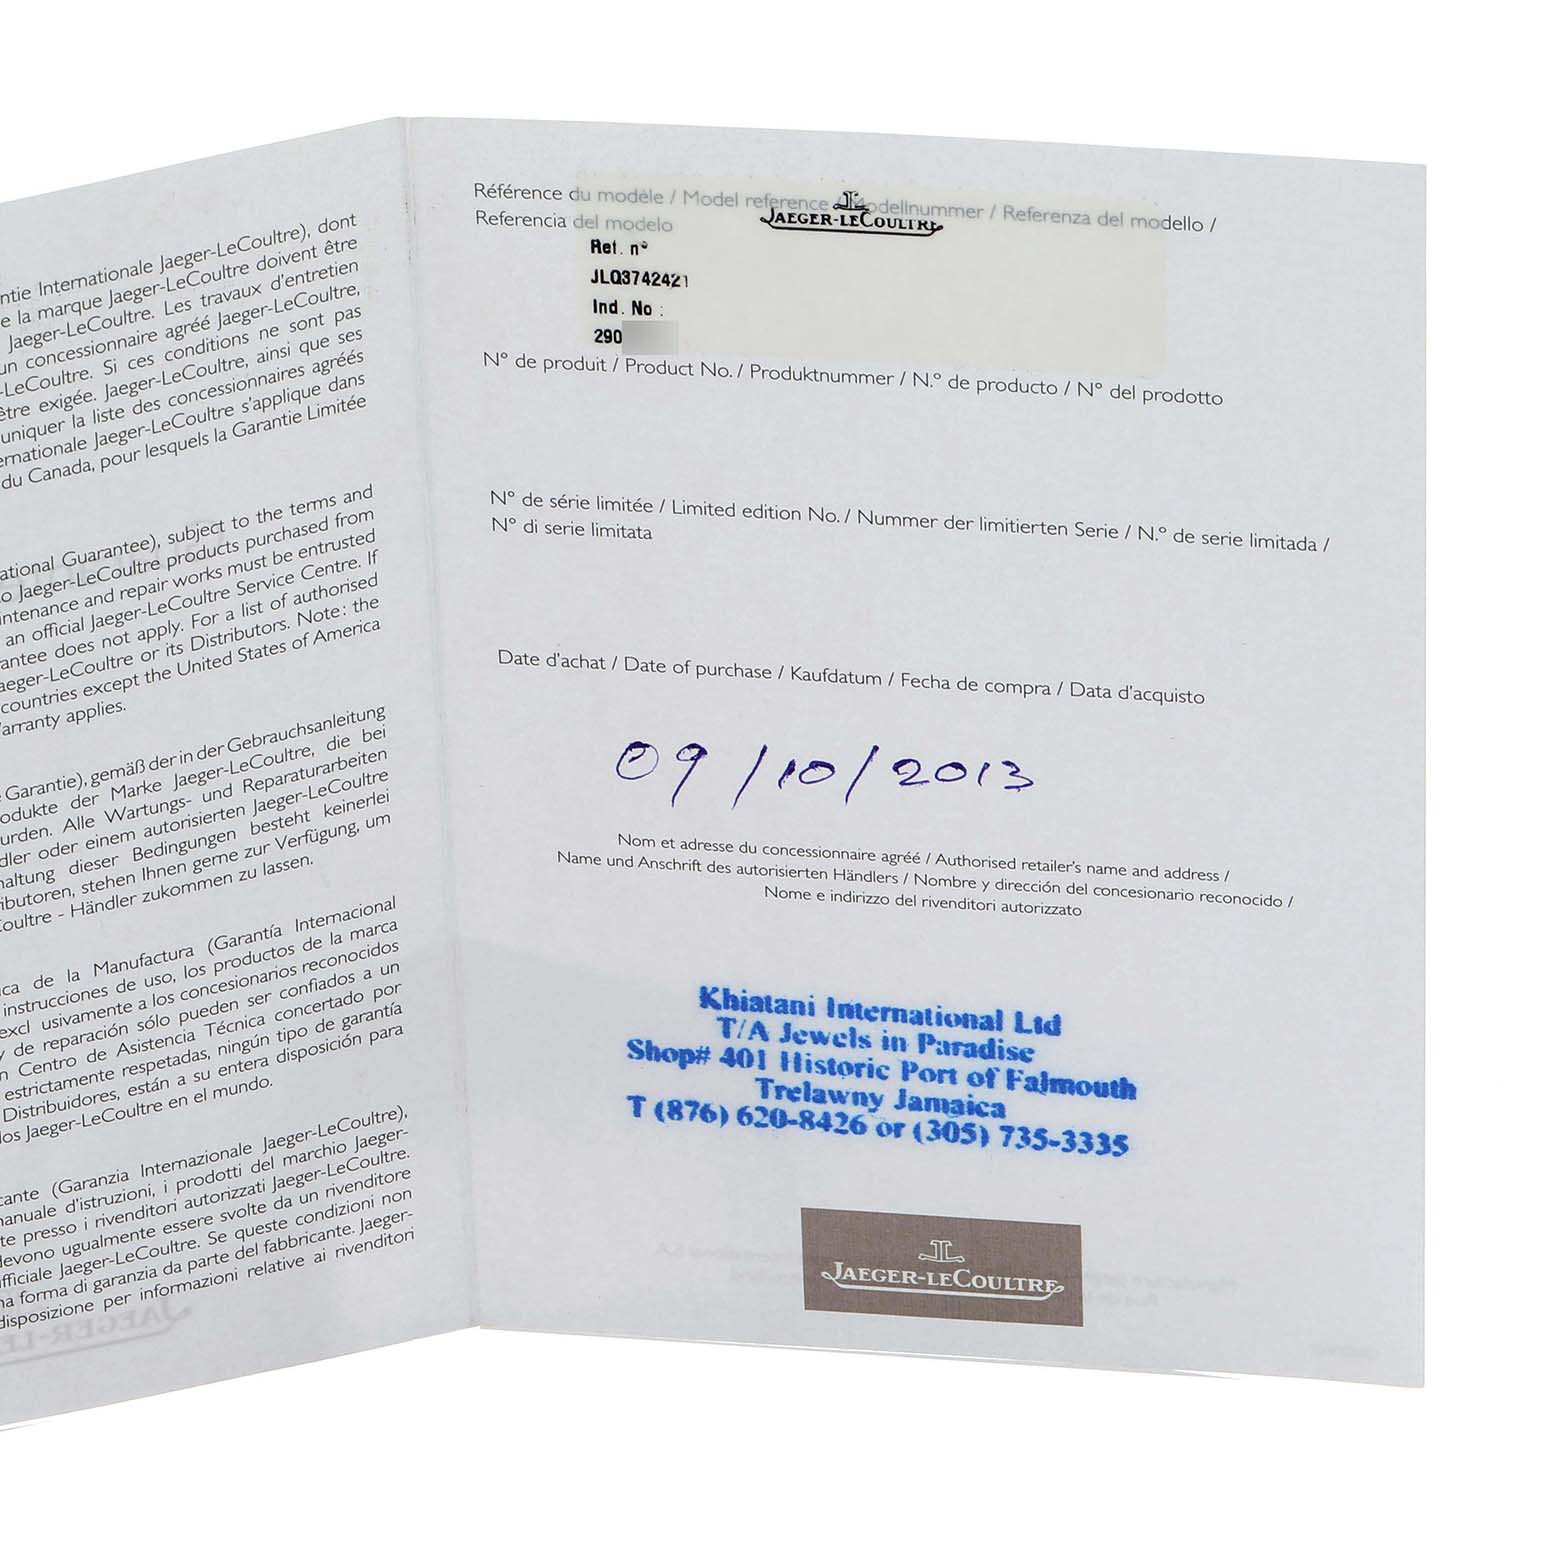 ntie Internationale Jaeger-LeCoultre), dont
e la marque Jaeger-LeCoultre doivent être
Jaeger-LeCoultre. Les travaux d'entretien
un concessionnaire agréé Jaeger-LeCoultre,
-LeCoultre. Si ces conditions ne sont pas
être exigée. Jaeger-LeCoultre, ainsi que ses
uniquer la liste des concessionnaires agréés
ernationale Jaeger-LeCoultre s'applique dans
du Canada, pour lesquels la Garantie Limitée
ational Guarantee), subject to the terms and
o Jaeger-LeCoultre products purchased from
intenance and repair works must be entrusted
an official Jaeger-LeCoultre Service Centre. If
rantee does not apply. For a list of authorised
aeger-LeCoultre or its Distributors. Note: the
countries except the United States of America
arranty applies.
Garantie), gemäß der in der Gebrauchsanleitung
odukte der Marke Jaeger-LeCoultre, die bei
urden. Alle Wartungs- und Reparaturarbeiten
dler oder einem autorisierten Jaeger-LeCoultre
haltung dieser Bedingungen besteht keinerlei
ibutoren, stehen Ihnen gerne zur Verfügung, um
Coultre - Händler zukommen zu lassen.
ca de la Manufactura (Garantía Internacional
instrucciones de uso, los productos de la marca
excl usivamente a los concesionarios reconocidos
y de reparación sólo pueden ser confiados a un
n Centro de Asistencia Técnica concertado por
estrictamente respetadas, ningún tipo de garantía
Distribuidores, están a su entera disposición para
los Jaeger-LeCoultre en el mundo.
cante (Garanzia Internazionale Jaeger-LeCoultre),
manuale d'istruzioni, i prodotti del marchio Jaeger-
te presso i rivenditori autorizzati Jaeger-LeCoultre.
devono ugualmente essere svolte da un rivenditore
fficiale Jaeger-LeCoultre. Se queste condizioni non
na forma di garanzia da parte del fabbricante. Jaeger-
disposizione per informazioni relative ai rivenditori
Référence du modèle / Model reference / Modellnummer / Referenza del modello /
Referencia del modelo
JAEGER-LECOULTRE
Ref. n°
JLQ3742421
Ind. No :
290
N° de produit / Product No. / Produktnummer / N.° de producto / N° del prodotto
N° de série limitée / Limited edition No. / Nummer der limitierten Serie / N.° de serie limitada /
N° di serie limitata
Date d'achat / Date of purchase / Kaufdatum / Fecha de compra / Data d'acquisto
09/10/2013
Nom et adresse du concessionnaire agréé / Authorised retailer's name and address /
Name und Anschrift des autorisierten Händlers / Nombre y dirección del concesionario reconocido /
Nome e indirizzo del rivenditori autorizzato
Khiatani International Ltd
T/A Jewels in Paradise
Shop# 401 Historic Port of Falmouth
Trelawny Jamaica
T (876) 620-8426 or (305) 735-3335
JAEGER-LECOULTRE